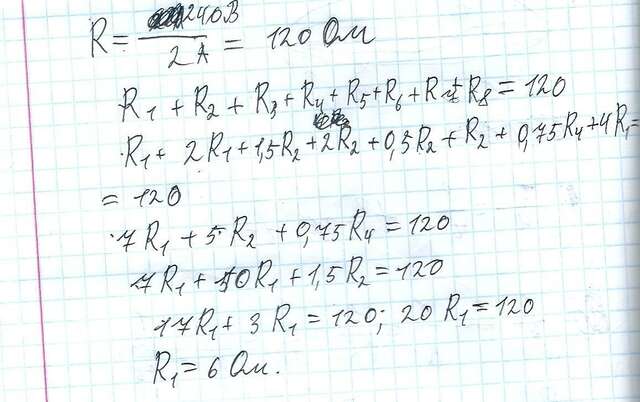 R = 240В / 2А = 120 Ом
R1 + R2 + R3 + R4 + R5 + R6 + R7 + R8 = 120
R1 + 2R1 + 1,5R2 + 2R2 + 0,5R2 + R2 + 0,75R4 + 4R1 =
= 120
7R1 + 5R2 + 0,75R4 = 120
7R1 + 10R1 + 1,5R2 = 120
17R1 + 3R1 = 120; 20R1 = 120
R1 = 6 Ом.